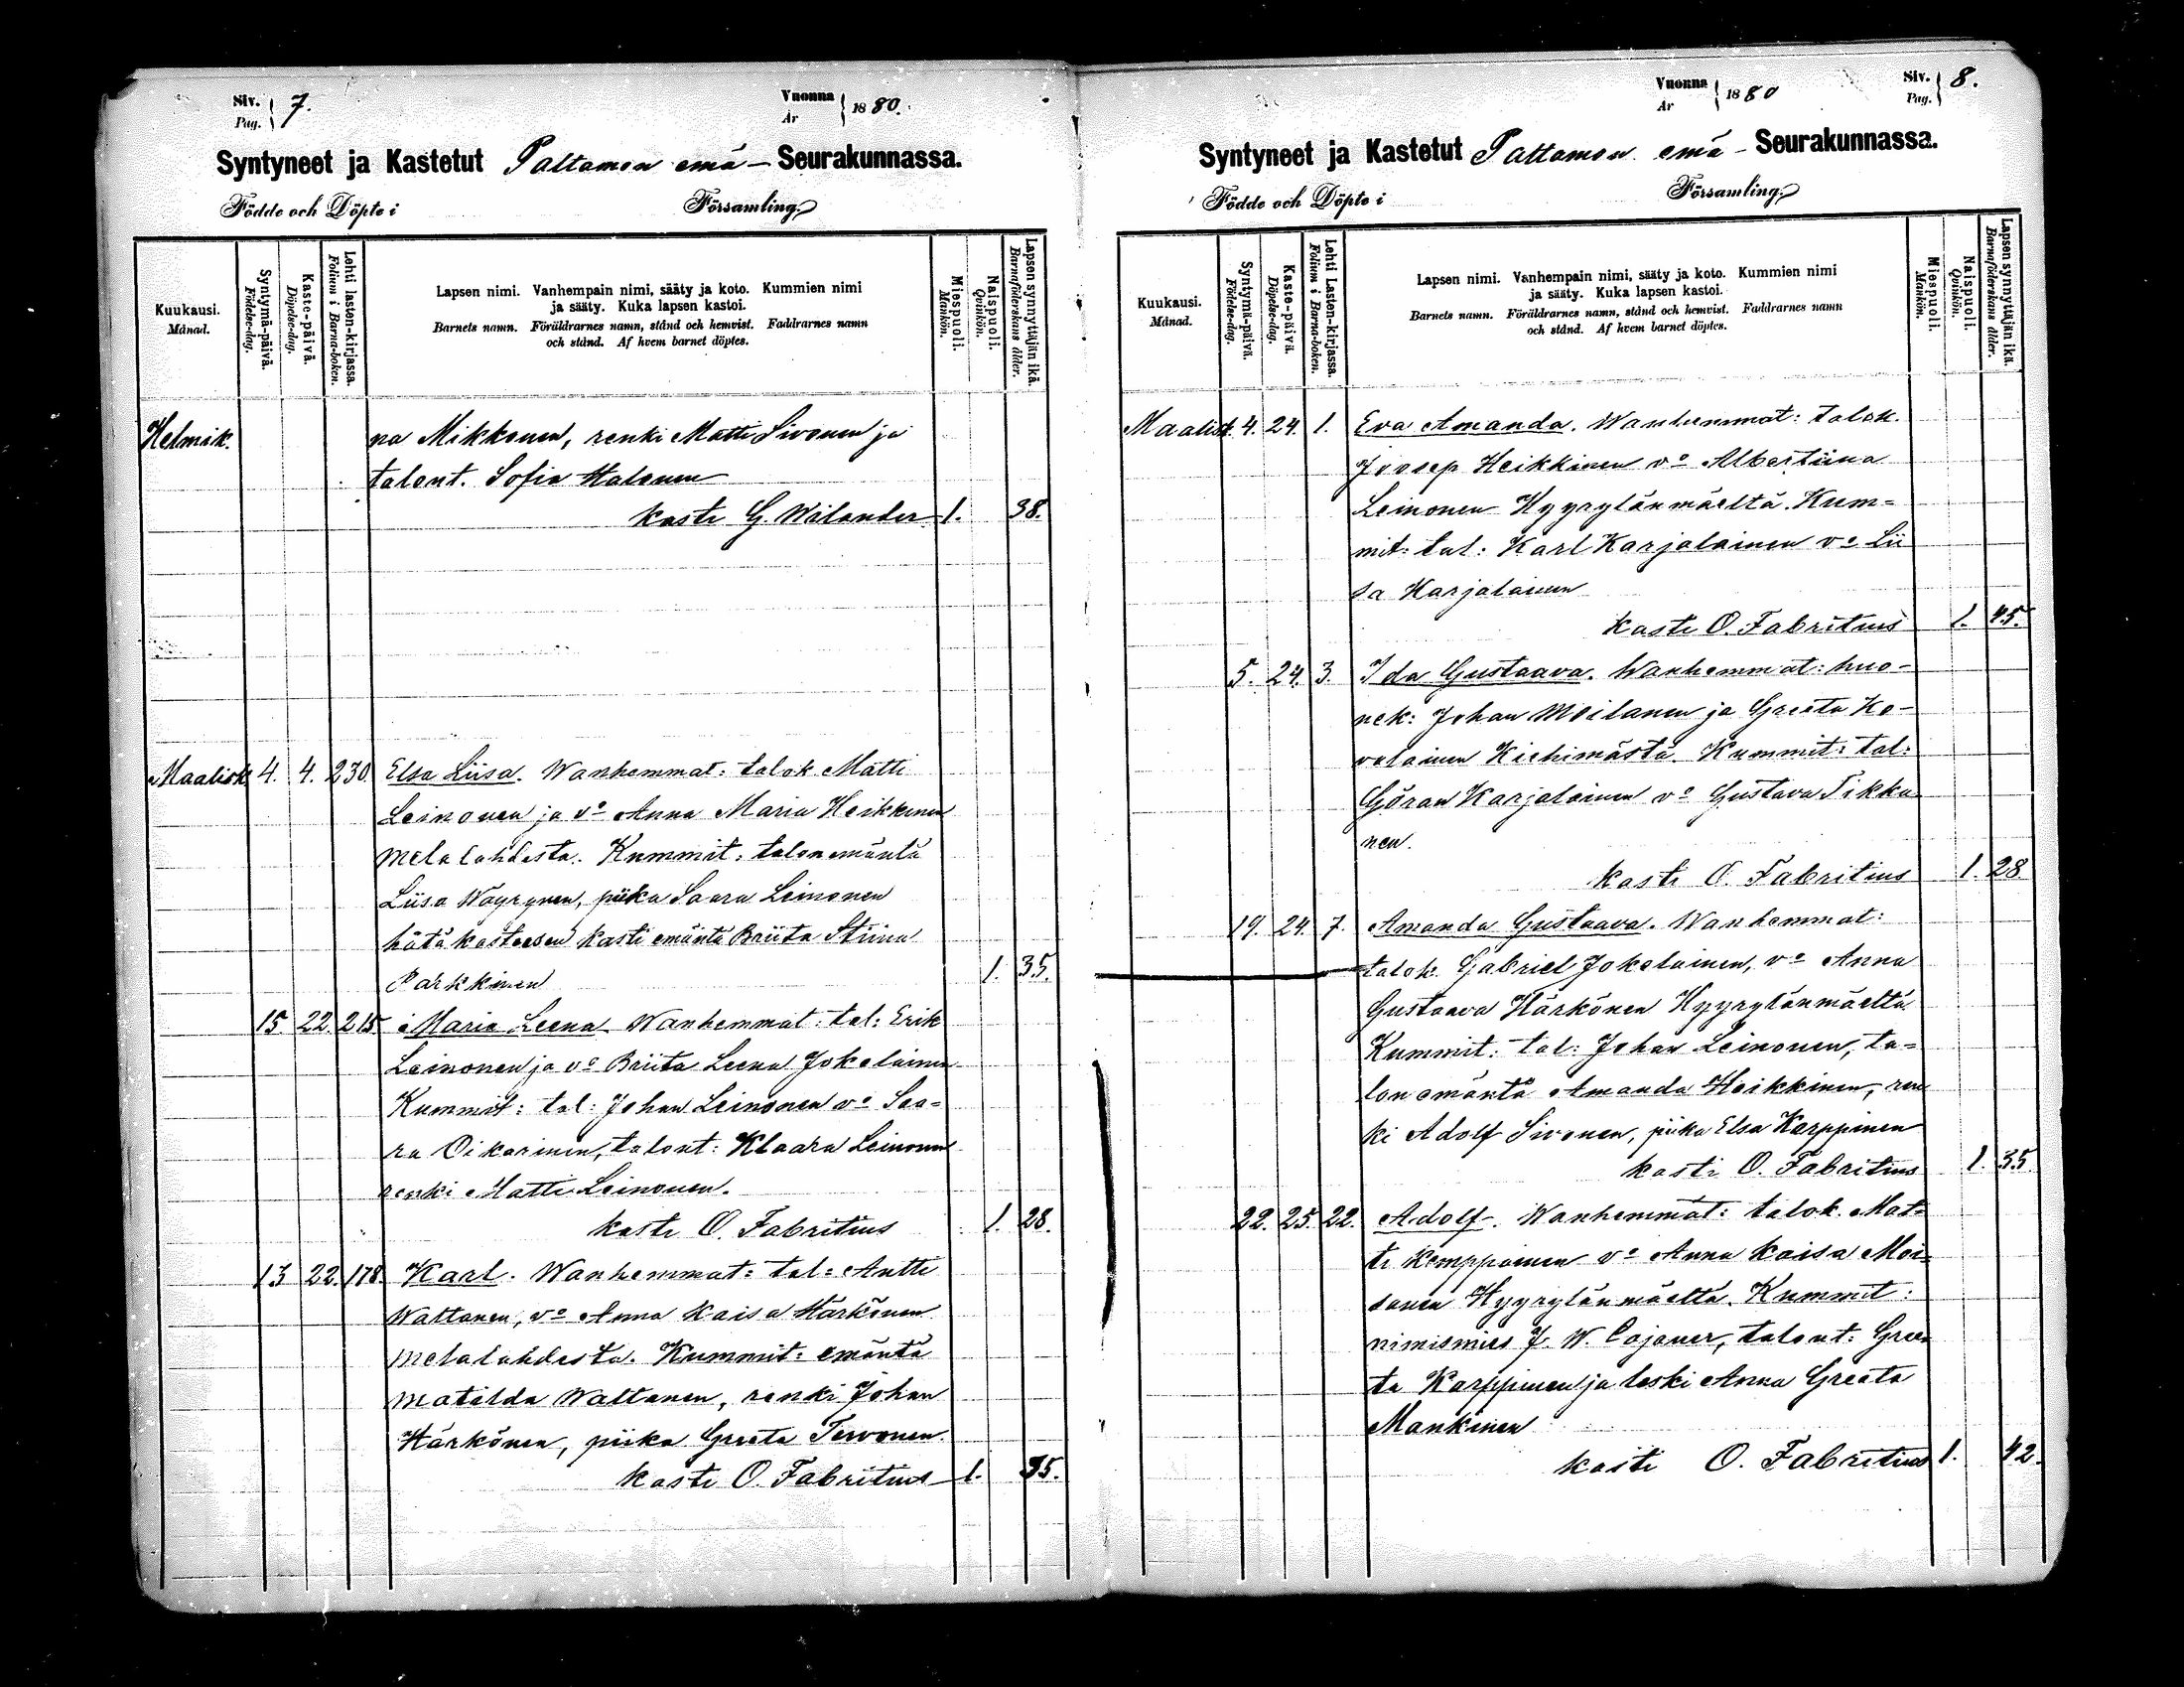 Siv. Pag. 7.
Vuonna År 1880.
Syntyneet ja Kastetut Paltamon emä- Seurakunnassa.
Födde och Döpte i Församling.
Kuukausi. Månad.
Syntymä-päivä. Födelse-dag.
Kaste-päivä. Döpelse-dag.
Lehti lasten-kirjassa. Folium i Barna-boken.
Lapsen nimi. Vanhempain nimi, sääty ja koto. Kummien nimi
ja sääty. Kuka lapsen kastoi.
Barnets namn. Föräldrarnes namn, stånd och hemvist. Faddrarnes namn
och stånd. Af hvem barnet döptes.
Miespuoli. Mankön.
Naispuoli. Qvinkön.
Lapsen synnyttäjän ikä. Barnaföderskans ålder.
Helmik. na Mikkonen, renki Matti Sivonen ja
talont. Sofia Halonen
kasti G. Wilander 1. 38.
Maalisk. 4. 4. 230 Elsa Liisa. Wanhemmat: talok. Matti
Leinonen ja vo Anna Maria Heikkinen
Melalahdesta. Kummit: talonemäntä
Liisa Wäyrynen, piika Saara Leinonen
hätäkasteesen kasti emäntä Briita Stiina
Parkkinen 1. 35.
15. 22. 215 Maria Leena. Wanhemmat: tal: Erik
Leinonen ja vo Briita Leena Jokelainen
Kummit: tal: Johan Leinonen vo Saa=
ra Oikarinen, talont: Klaara Leinonen
renki Matti Leinonen.
kasti O. Fabritius 1. 28.
13 22. 178. Karl. Wanhemmat: tal: Antti
Waltanen, vo Anna Kaisa Härkönen
Melalahdesta. Kummit: emäntä
Matilda Waltanen, renki Johan
Härkönen, piika Greeta Tervonen.
kasti O. Fabritius 1. 35.
Vuonna År 1880
Siv. Pag. 8.
Syntyneet ja Kastetut Paltamon emä- Seurakunnassa.
Födde och Döpte i Församling.
Kuukausi. Månad.
Syntymä-päivä. Födelse-dag.
Kaste-päivä. Döpelse-dag.
Lehti Lasten-kirjassa. Folium i Barna-boken.
Lapsen nimi. Vanhempain nimi, sääty ja koto. Kummien nimi
ja sääty. Kuka lapsen kastoi.
Barnets namn. Föräldrarnes namn, stånd och hemvist. Faddrarnes namn
och stånd. Af hvem barnet döptes.
Miespuoli. Mankön.
Naispuoli. Qvinkön.
Lapsen synnyttäjän ikä. Barnaföderskans ålder.
Maalisk. 4. 24. 1. Eva Amanda. Wanhemmat: talok.
Joosep Heikkinen vo Albertiina
Leinonen Hyyrylänmäeltä. Kum=
mit: tal: Karl Karjalainen vo Lii
sa Karjalainen
kasti O. Fabritius 1. 45.
5. 24. 3. Ida Gustaava. Wanhemmat: huo-
nek: Johan Moilanen ja Greeta Ko-
valainen Kiehimästä. Kummit: tal:
Göran Karjalainen vo Gustava Tikka
nen.
kasti O. Fabritius 1. 28
19. 24. 7. Amanda Gustaava. Wanhemmat:
talok. Gabriel Jokelainen, vo Anna
Gustaava Härkönen Hyyrylänmäeltä.
Kummit: tal: Johan Leinonen, ta=
lonemäntä Amanda Heikkinen, ren
ki Adolf Sivonen, piika Elsa Karppinen
kasti O. Fabritius 1. 35
22. 25. 22. Adolf. Wanhemmat: talok. Mat=
ti Kemppainen vo Anna Kaisa Moi=
sanen Hyyrylänmäeltä. Kummit:
nimismies J. W. Cajaner, talont: Gree
ta Karppinen ja leski Anna Greeta
Mankinen
kasti O. Fabritius 1. 42.